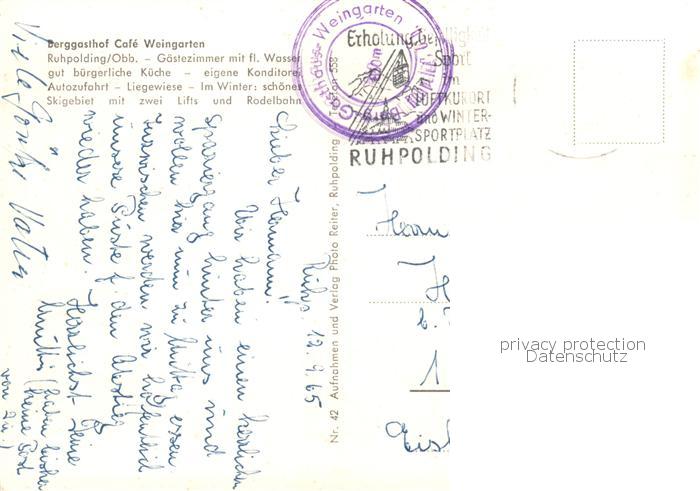 Berggasthof Café Weingarten
Ruhpolding/Obb. – Gästezimmer mit fl. Wasser
gut bürgerliche Küche – eigene Konditorei
Autozufahrt – Liegewiese – Im Winter: schönes
Skigebiet mit zwei Lifts und Rodelbahn
Gasthaus Weingarten
Erholung
Sport
im
LUFTKURORT
und WINTER-
SPORTPLATZ
RUHPOLDING
Nr. 42 Aufnahmen und Verlag Photo Reiter, Ruhpolding
Ruhp. 12.9.65
Lieber Hermann!
Wir haben einen herrlichen
Spaziergang hinter uns und
wollen hier nun zu Mittag essen
Inzwischen werden wir hoffentlich
unsere Püste f. den Abstieg
wieder haben.
Herzlichst Deine
Mutti (haben bisher
keine Post
von Dir!)
Viele Grüße Vater
Herrn
H
b.
1
privacy protection
Datenschutz